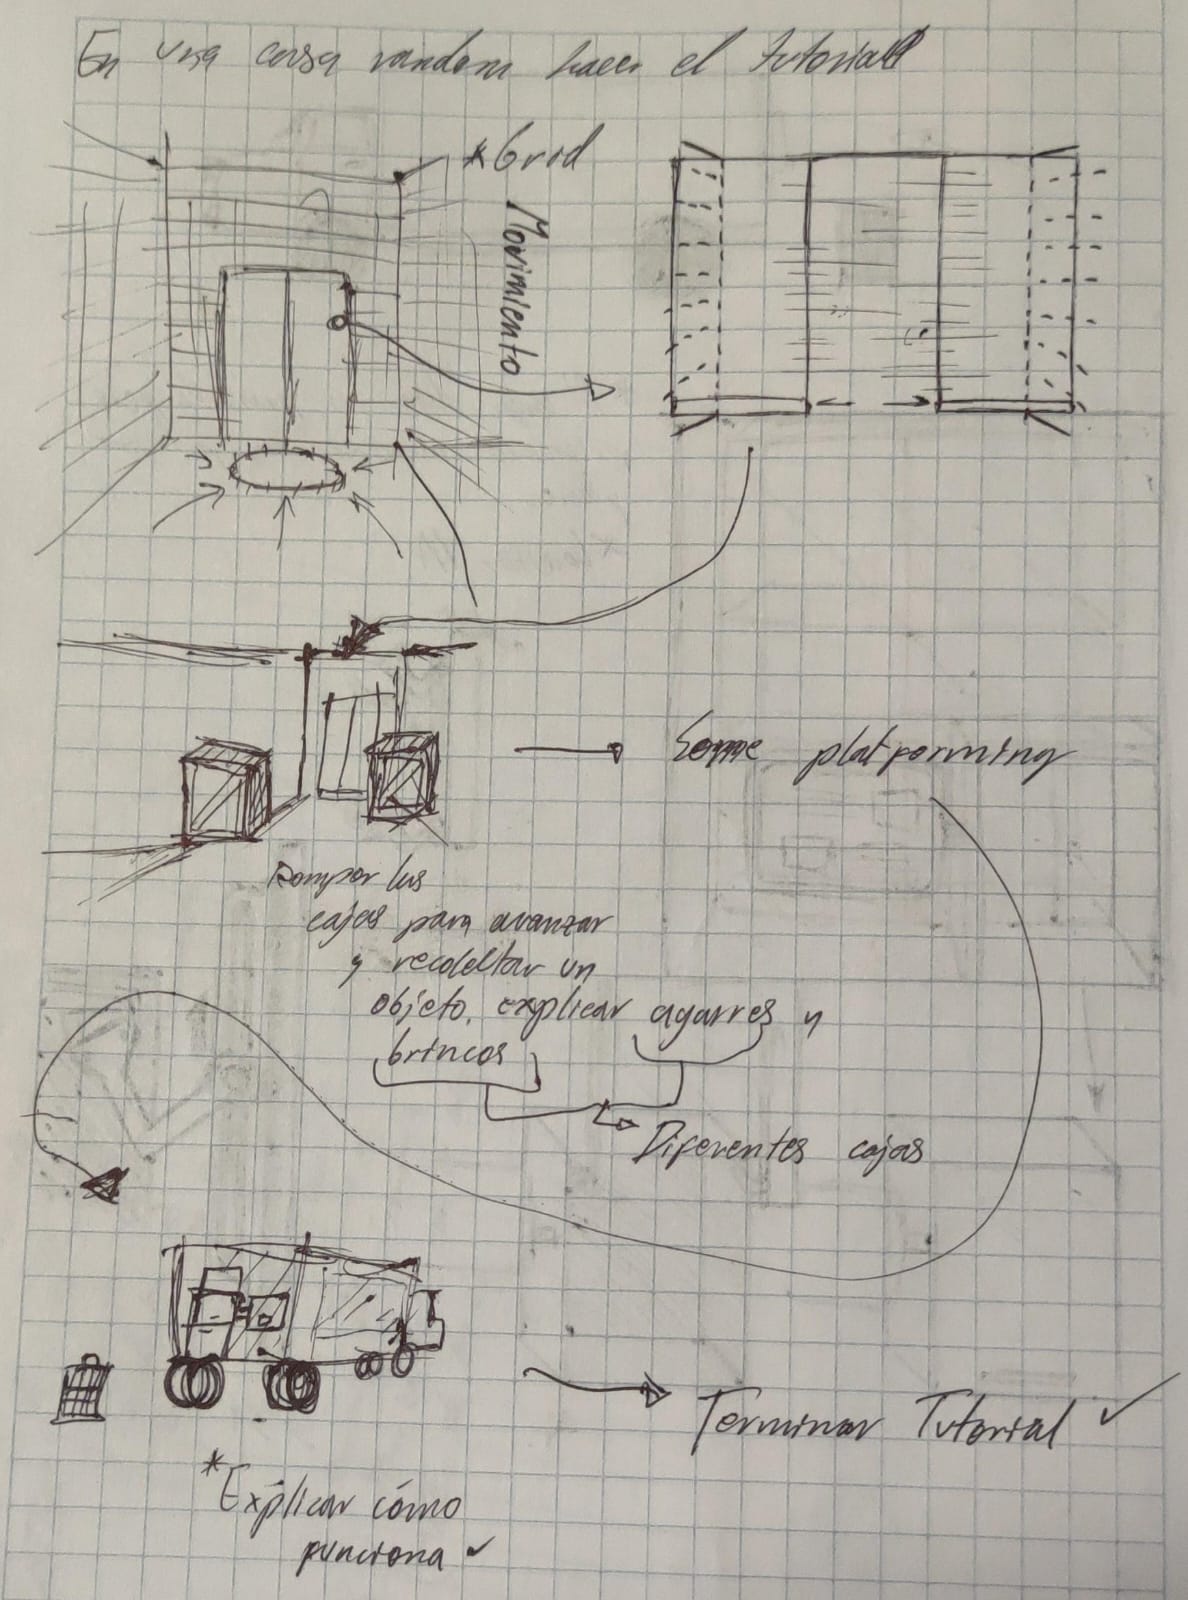 En una casa random hacer el tutorial
*Grid
Movimiento
Some platforming
Romper las
cajas para avanzar
y recolectar un
objeto, explicar agarres y
brincos
Diferentes cajas
Terminar Tutorial ✓
*Explicar cómo
funciona ✓